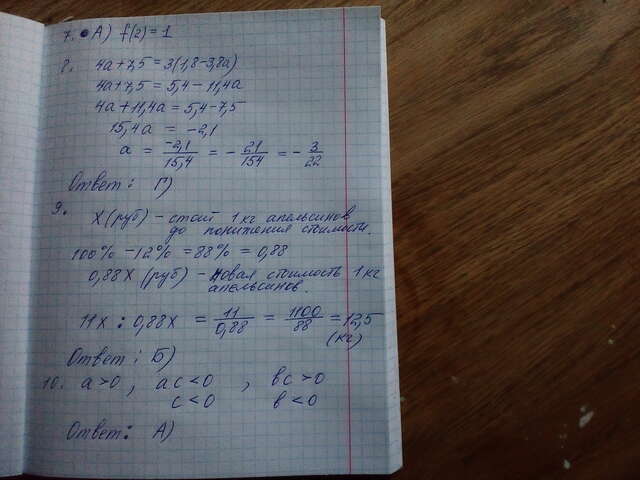 7. А) f(2) = 1
8. 4a + 7,5 = 3(1,8 - 3,8a)
4a + 7,5 = 5,4 - 11,4a
4a + 11,4a = 5,4 - 7,5
15,4a = -2,1
a = -2,1/15,4 = - 21/154 = - 3/22
Ответ: Г)
9. X (руб) - стоит 1 кг апельсинов
до понижения стоимости.
100% - 12% = 88% = 0,88
0,88X (руб) - новая стоимость 1 кг
апельсинов
11x : 0,88x = 11/0,88 = 1100/88 = 12,5
(кг)
Ответ: Б)
10. a > 0, ac < 0, bc > 0
c < 0 b < 0
Ответ: А)